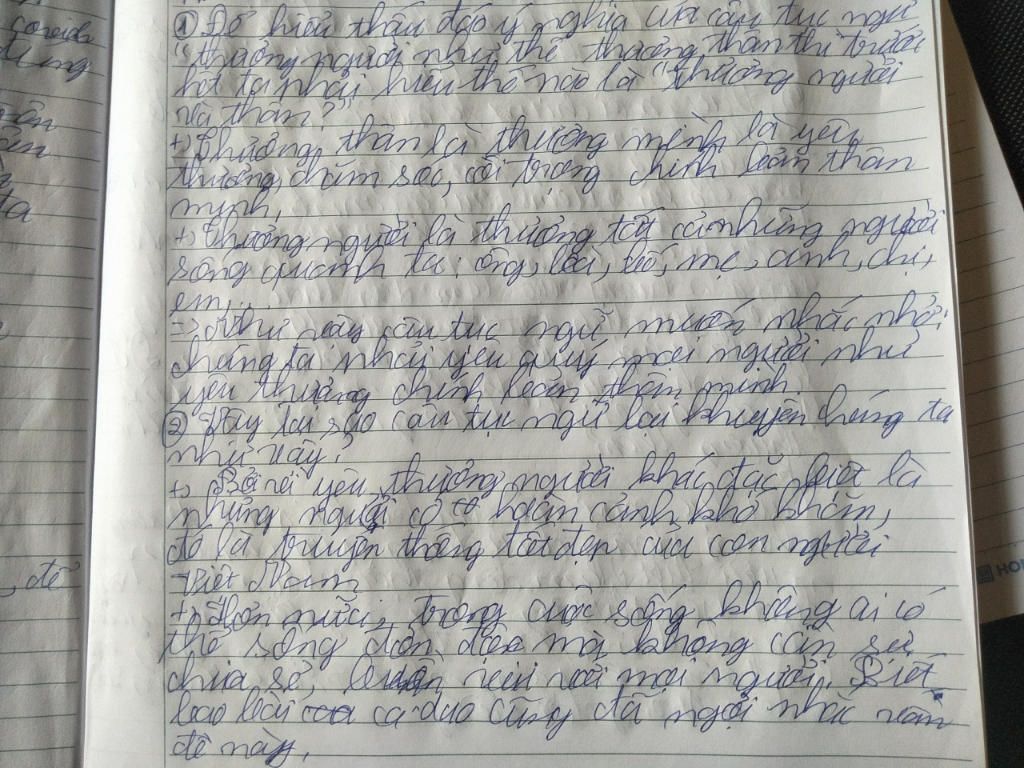 conids
dùng
ta
, để
① Để hiểu thấu đáo ý nghĩa của câu tục ngữ
"thương người như thể thương thân thì trước
hết ta phải hiểu thế nào là "thương người
và thân?"
+) Thương thân là thương mình, là yêu
thương, chăm sóc, coi trọng chính bản thân
mình.
+) Thương người là thương tất cả những người
sống quanh ta: ông, bà, bố, mẹ, anh, chị,
em,..
=> Như vậy câu tục ngữ muốn nhắc nhở
chúng ta phải yêu quý mọi người như
yêu thương chính bản thân mình
② Vậy tại sao câu tục ngữ lại khuyên chúng ta
như vậy?
+) Bởi vì yêu thương người khác đặc biệt là
những người có hoàn cảnh khó khăn,
đó là truyền thống tốt đẹp của con người
Việt Nam
+) Hơn nữa, trong cuộc sống không ai có
thể sống đơn độc mà không cần sự
chia sẻ, buồn vui với mọi người. Biết
bao bài ca dao cũng đã ngợi nhắc vấn
đề này.
HON